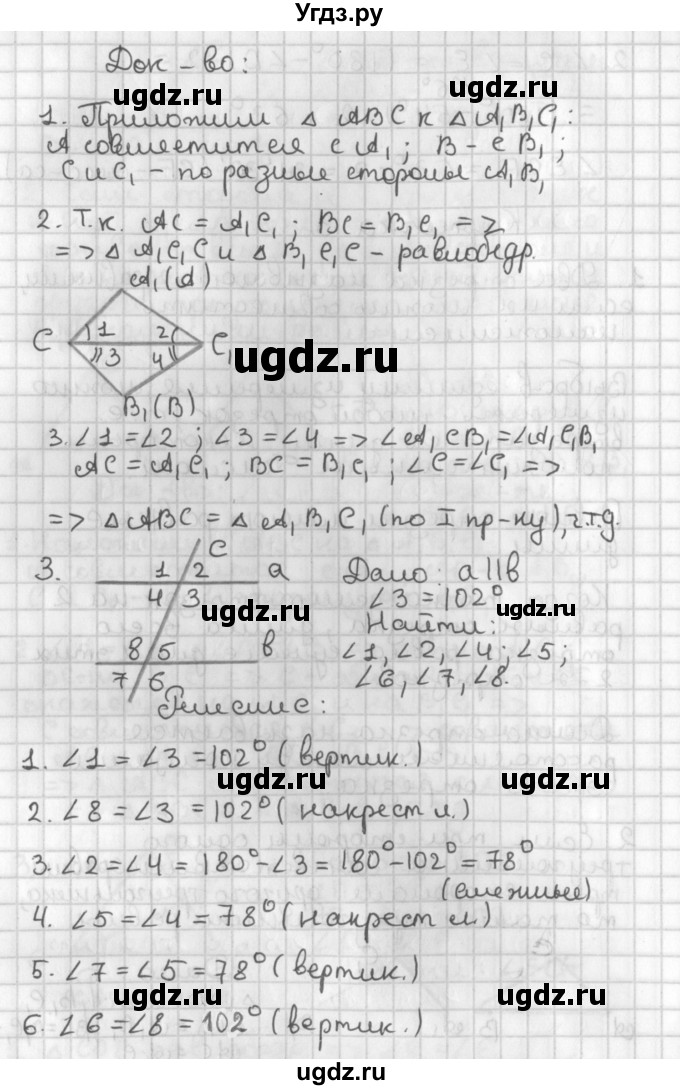 Угдз.ру
Док-во:
ugdz.ru ugdz.ru
1. Приложим △ ABC к △ A₁B₁C₁:
A совместится с A₁; B - с B₁;
C и C₁ - по разные стороны A₁B₁
2. Т.к. AC = A₁C₁; BC = B₁C₁ =>
=> △ A₁C₁C и △ B₁C₁C - равнобедр.
A₁(A)
C 1 2 C₁
3 4
ugdz.ru
B₁(B)
3. ∠1 = ∠2; ∠3 = ∠4 => ∠A₁CB₁ = ∠A₁C₁B₁
AC = A₁C₁; BC = B₁C₁; ∠C = ∠C₁ =>
=> △ ABC = △ A₁B₁C₁ (по I пр-ку), ч.т.д.
3. 1 2 c a Дано: a||в
4 3 ugdz.ru ∠3 = 102° ugdz.ru
Найти:
8 5 в ∠1, ∠2, ∠4; ∠5;
7 6 ∠6, ∠7, ∠8.
Решение:
1. ∠1 = ∠3 = 102° (вертик.)
ugdz.ru ugdz.ru
2. ∠8 = ∠3 = 102° (накрест л.)
3. ∠2 = ∠4 = 180° - ∠3 = 180° - 102° = 78°
(смежные)
4. ∠5 = ∠4 = 78° (накрест л.)
ugdz.ru
5. ∠7 = ∠5 = 78° (вертик.)
ugdz.ru ugdz.ru
6. ∠6 = ∠8 = 102° (вертик.)
ugdz.ru